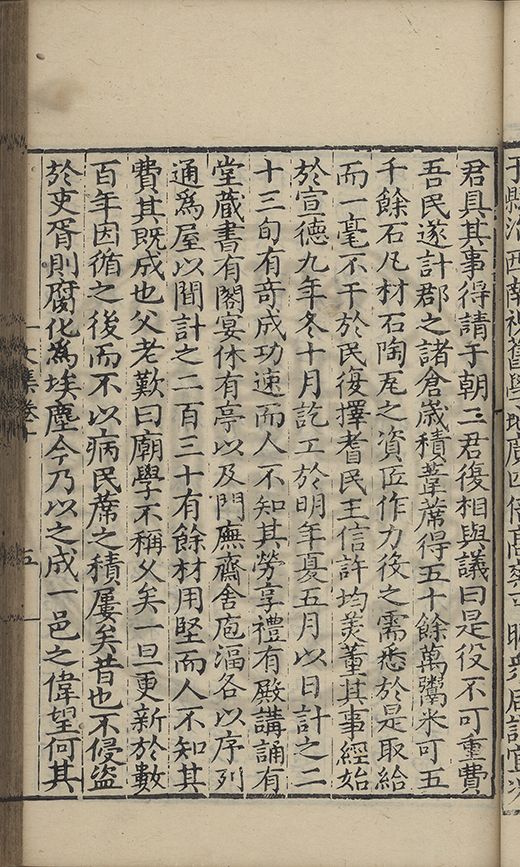 君具其事得請于朝二君復相與議曰是役不可重費
吾民遂計郡之諸倉歲積葦蓆得五十餘萬鬻米可五
千餘石凡材石陶瓦之資匠作力役之需悉於是取給
而一毫不干於民復擇耆民王信許均羙董其事經始
於宣德九年冬十月訖工於明年夏五月以日計之二
十三旬有奇成功速而人不知其勞享禮有殿講誦有
堂藏書有閣宴休有亭以及門廡齋舍庖湢各以序列
通為屋以間計之二百三十有餘材用堅而人不知其
費其既成也父老歎曰廟學不稱父矣一旦更新於數
百年因循之後而不以病民蓆之積屢矣昔也不侵盜
於吏胥則腐化為埃塵今乃以之成一邑之偉望何其
文集卷
五